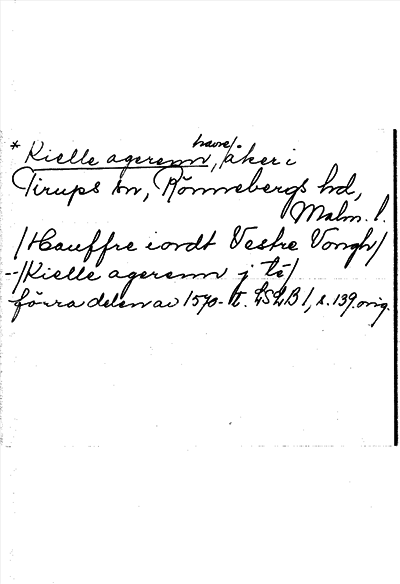 * Kielle agerenn, havre/åker i
Tirups sn, Rönnebergs hd,
Malm. l.
/Hauffre iordt Vestre Vongh/
--/Kielle agerenn j tê/
förra delen av 1570-t. LSLB 1, s. 139 orig.